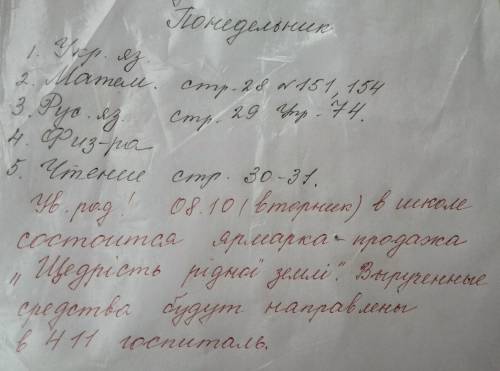 Понедельник
1. Укр. яз.
2. Матем. стр. 28 №151, 154
3. Рус. яз. стр. 29 Упр. 74.
4. Физ-ра
5. Чтение стр. 30-31.
Ув. род! 08.10 (вторник) в школе
состоится ярмарка-продажа
„Щедрість рідної землі". Вырученные
средства будут направлены
в 411 госпиталь.